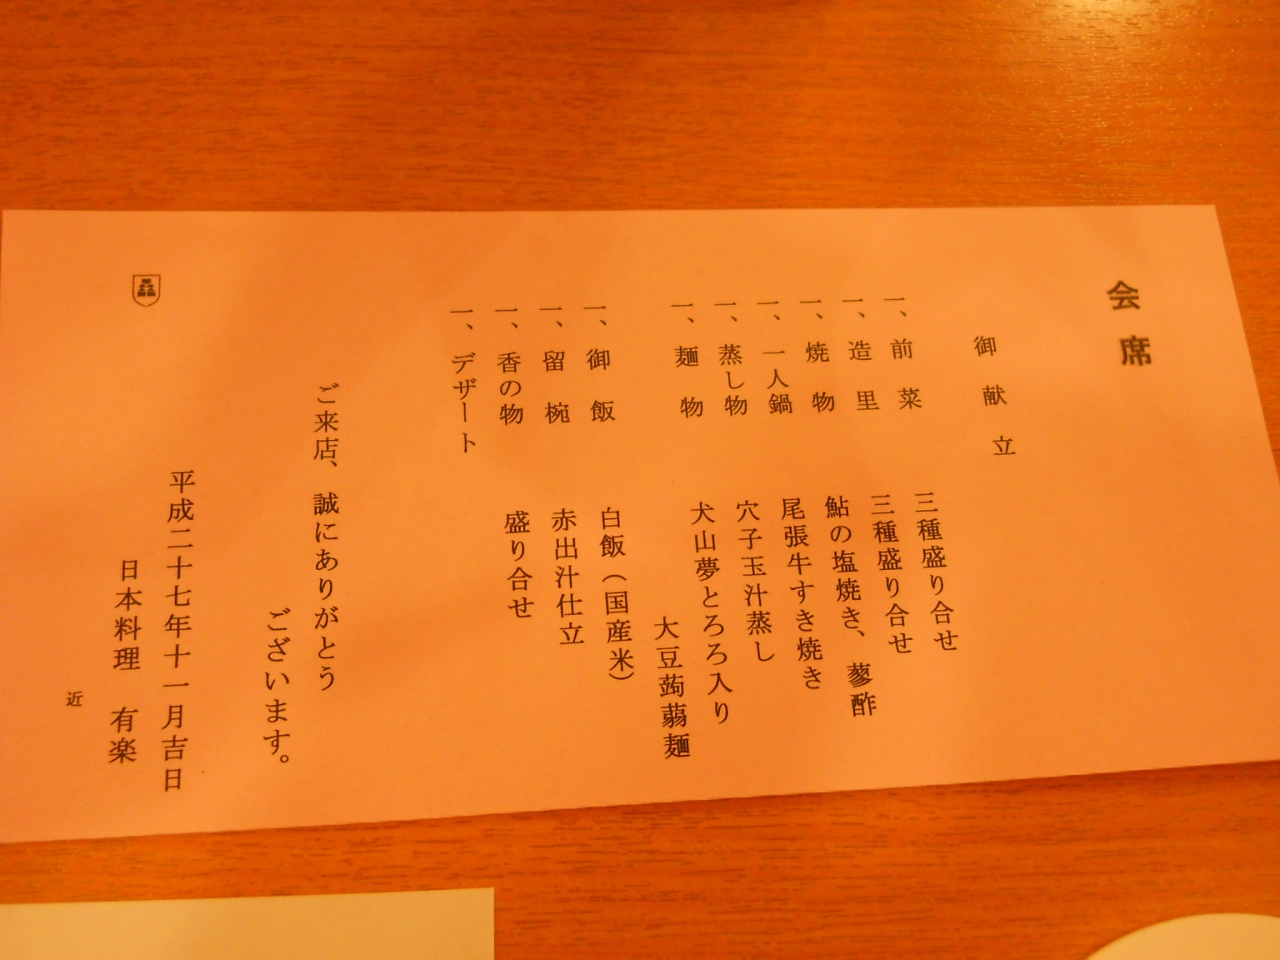 会席
御献立
一、前菜 三種盛り合せ
一、造里 三種盛り合せ
一、焼物 鮎の塩焼き、蓼酢
一、一人鍋 尾張牛すき焼き
一、蒸し物 穴子玉汁蒸し
一、麺物 犬山夢とろろ入り
大豆蒟蒻麺
一、御飯 白飯（国産米）
一、留椀 赤出汁仕立
一、香の物 盛り合せ
一、デザート
ご来店、誠にありがとう
ございます。
平成二十七年十一月吉日
日本料理 有楽
近